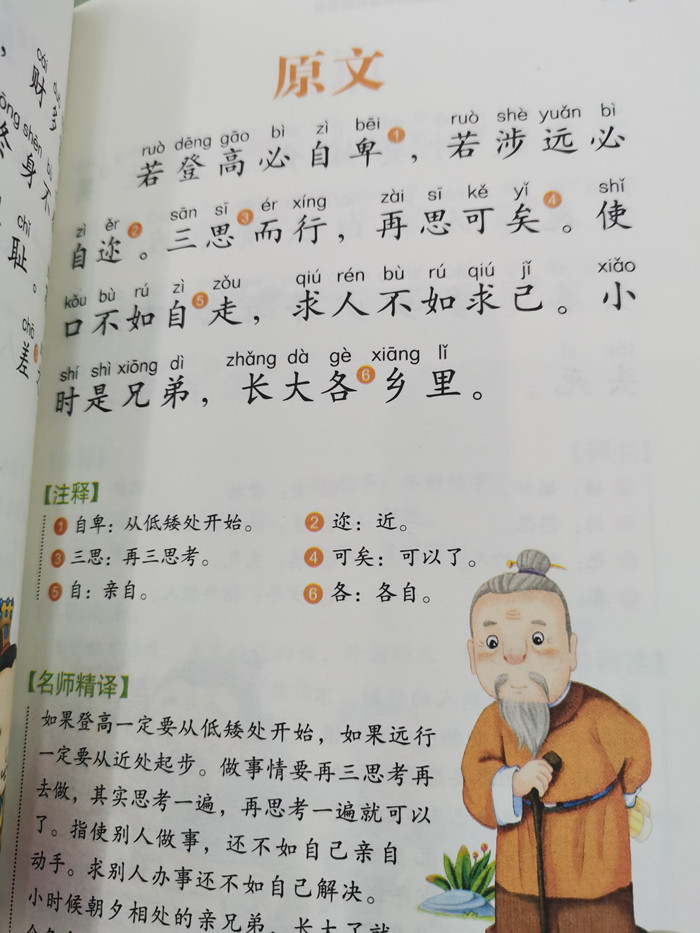 财
终身不
chǐ
耻。
差
原文
ruò dēng gāo bì zì bēi ruò shè yuǎn bì
若登高必自卑❶，若涉远必
zì ěr sān sī ér xíng zài sī kě yǐ shǐ
自迩❷。三思❸而行，再思可矣❹。使
kǒu bù rú zì zǒu qiú rén bù rú qiú jǐ xiǎo
口不如自❺走，求人不如求己。小
shí shì xiōng dì zhǎng dà gè xiāng lǐ
时是兄弟，长大各❻乡里。
【注释】
❶ 自卑：从低矮处开始。 ❷ 迩：近。
❸ 三思：再三思考。 ❹ 可矣：可以了。
❺ 自：亲自。 ❻ 各：各自。
【名师精译】
如果登高一定要从低矮处开始，如果远行
一定要从近处起步。做事情要再三思考再
去做，其实思考一遍，再思考一遍就可以
了。指使别人做事，还不如自己亲自
动手。求别人办事还不如自己解决。
小时候朝夕相处的亲兄弟，长大了就